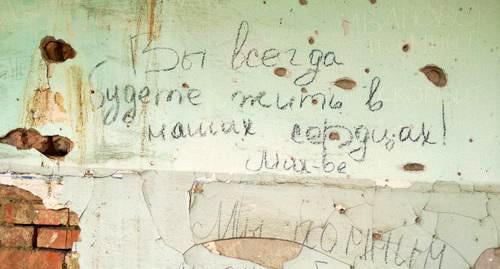 Вы всегда
будете жить в
наших сердцах!
Мы помним